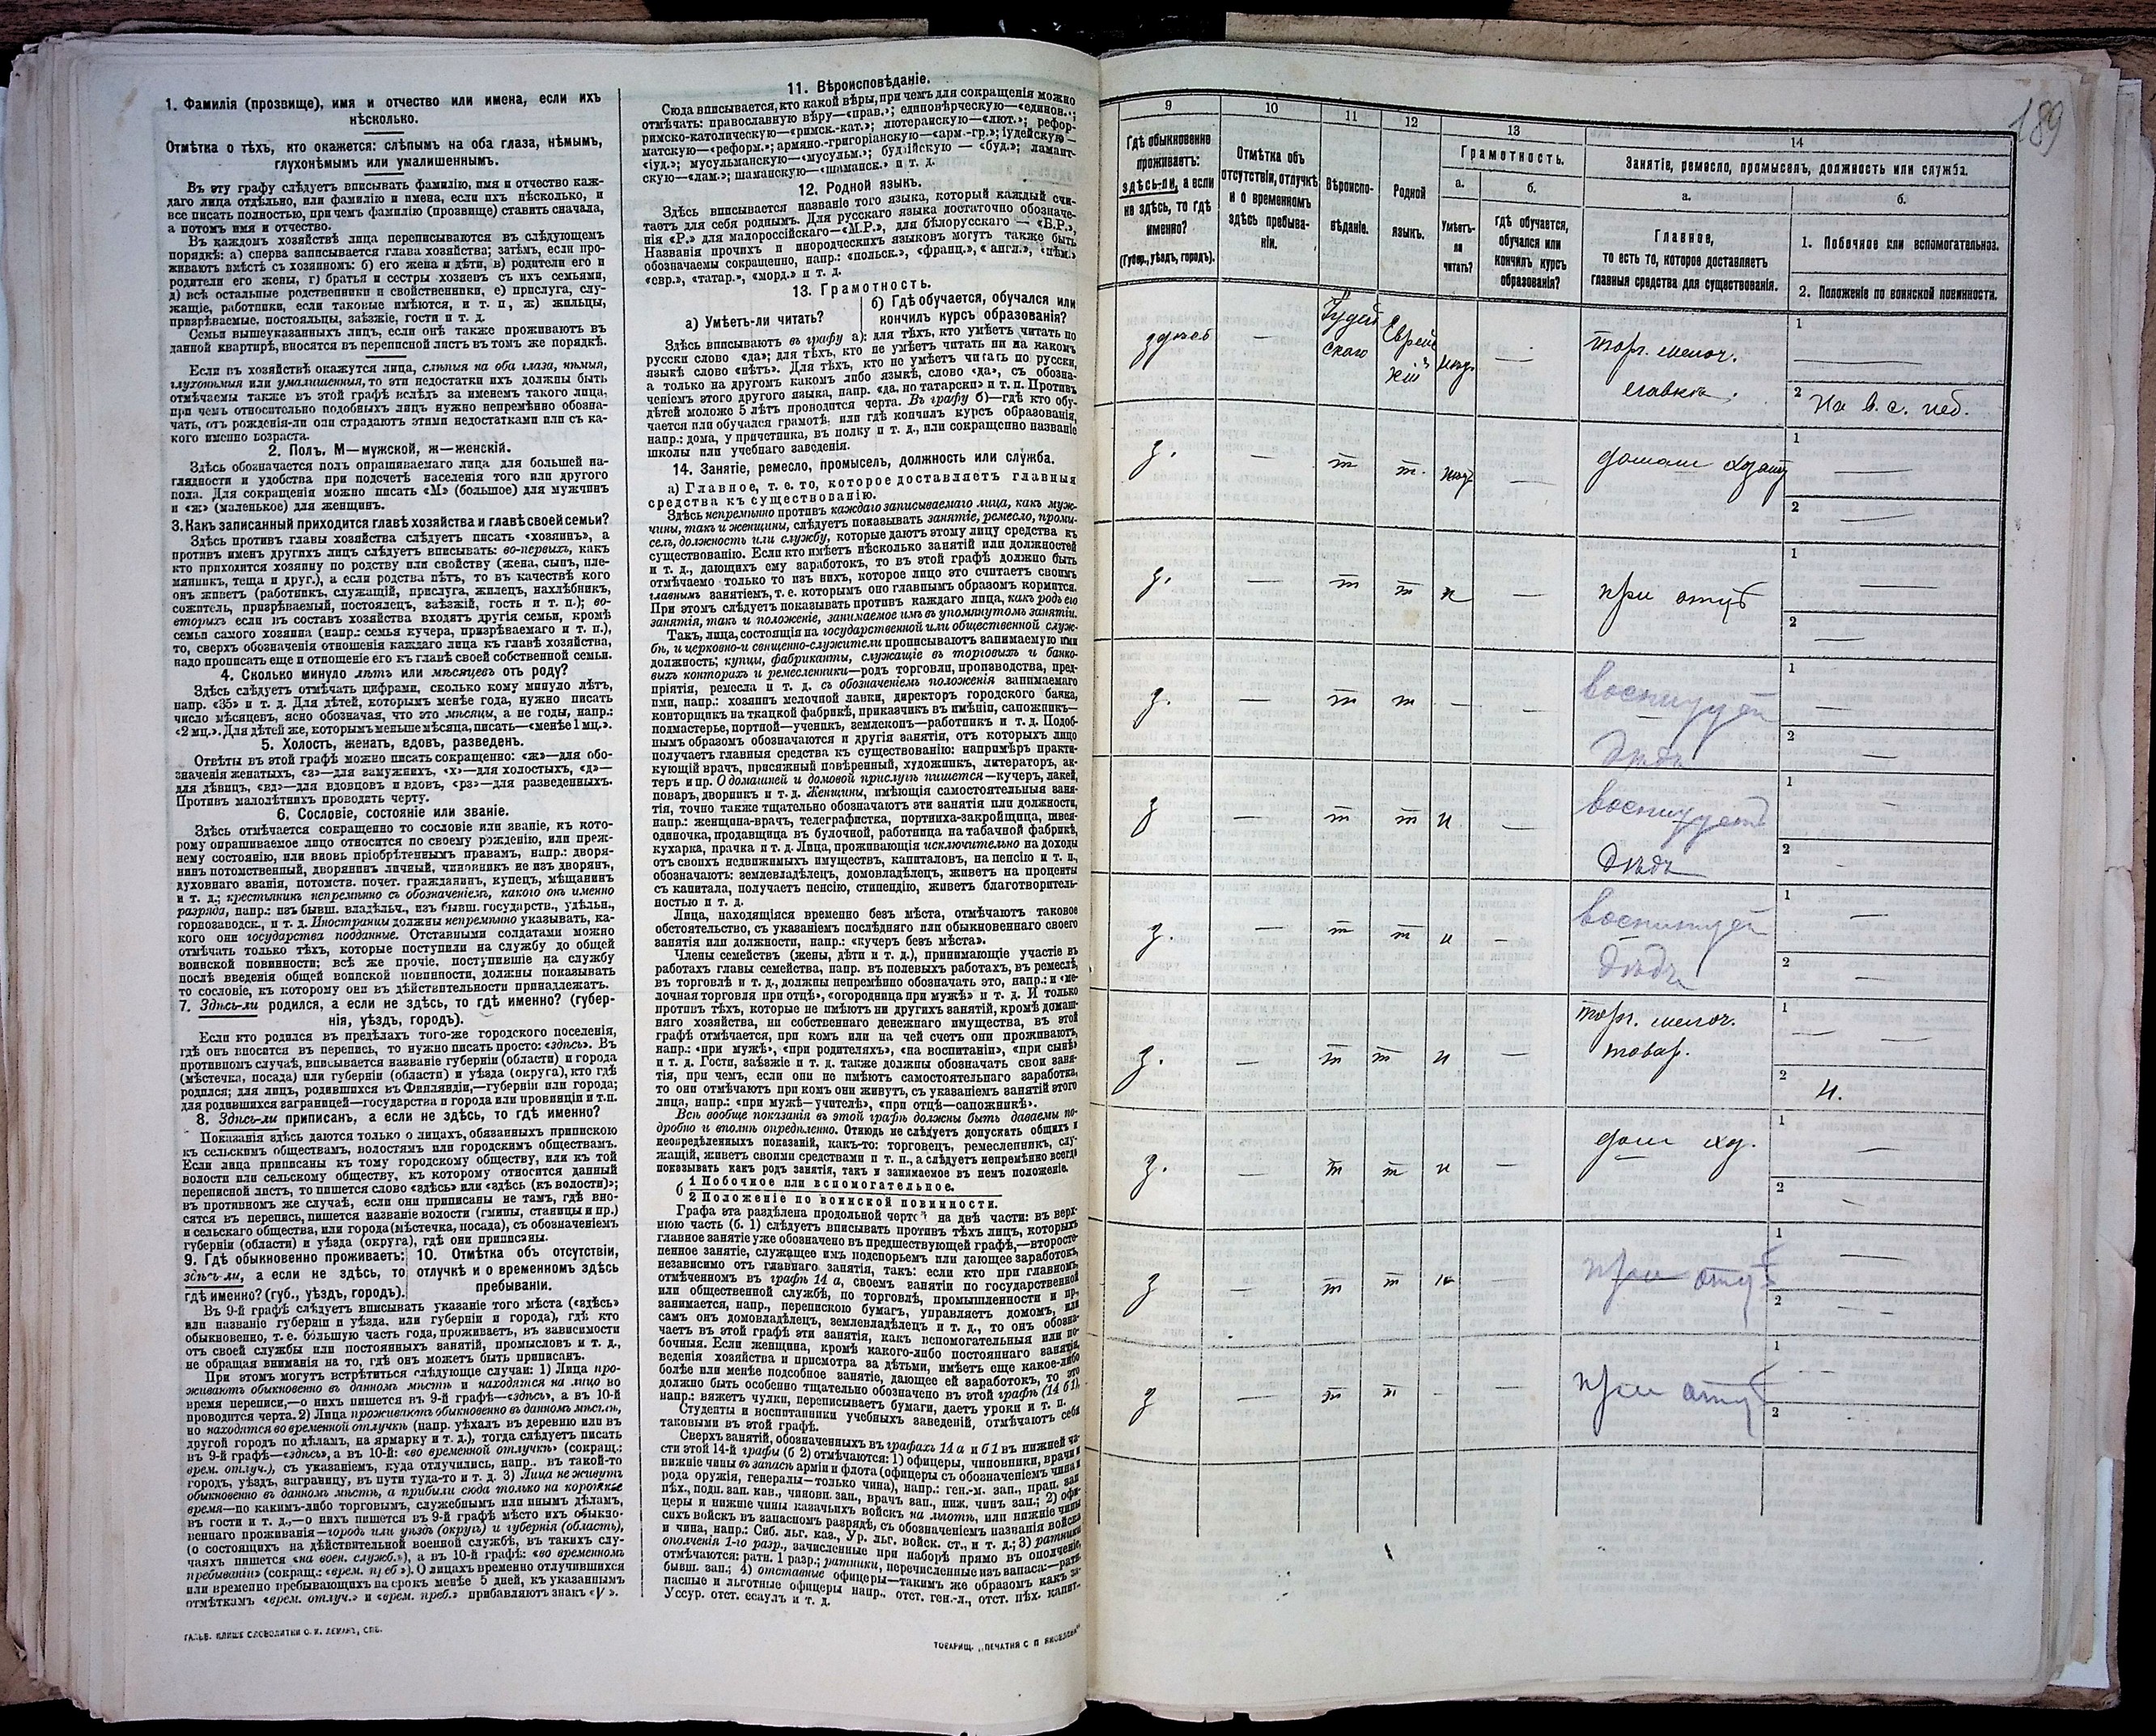 1. Фамилія (прозвище), имя и отчество или имена, если ихъ
нѣсколько.
Отмѣтка о тѣхъ, кто окажется: слѣпымъ на оба глаза, нѣмымъ,
глухонѣмымъ или умалишеннымъ.
Въ эту графу слѣдуетъ вписывать фамилію, имя и отчество каж-
даго лица отдѣльно, или фамилію и имена, если ихъ нѣсколько, и
все писать полностью, при чемъ фамилію (прозвище) ставить сначала,
а потомъ имя и отчество.
Въ каждомъ хозяйствѣ лица переписываются въ слѣдующемъ
порядкѣ: а) сперва записывается глава хозяйства; затѣмъ, если про-
живаютъ вмѣстѣ съ хозяиномъ: б) его жена и дѣти, в) родители его и
родители его жены, г) братья и сестры хозяевъ съ ихъ семьями,
д) всѣ остальные родственники и свойственники, е) прислуга, слу-
жащіе, работники, если таковые имѣются, и т. п., ж) жильцы,
призрѣваемые, постояльцы, заѣзжіе, гости и т. д.
Семья вышеуказанныхъ лицъ, если онѣ также проживаютъ въ
данной квартирѣ, вносятся въ переписной листъ въ томъ же порядкѣ.
Если въ хозяйствѣ окажутся лица, слѣпыя на оба глаза, нѣмыя,
глухонѣмыя или умалишенныя, то эти недостатки ихъ должны быть
отмѣчаемы также въ этой графѣ вслѣдъ за именемъ такого лица,
при чемъ относительно подобныхъ лицъ нужно непремѣнно обозна-
чать, отъ рожденія-ли они страдаютъ этими недостатками или съ ка-
кого именно возраста.
2. Полъ. М—мужской, ж—женскій.
Здѣсь обозначается полъ опрашиваемаго лица для большей на-
глядности и удобства при подсчетѣ населенія того или другого
пола. Для сокращенія можно писать «М» (большое) для мужчинъ
и «ж» (маленькое) для женщинъ.
3. Какъ записанный приходится главѣ хозяйства и главѣ своей семьи?
Здѣсь противъ главы хозяйства слѣдуетъ писать «хозяинъ», а
противъ именъ другихъ лицъ слѣдуетъ вписывать: во-первыхъ, какъ
кто приходится хозяину по родству или свойству (жена, сынъ, пле-
мянникъ, теща и друг.), а если родства нѣтъ, то въ качествѣ кого
онъ живетъ (работникъ, служащій, прислуга, жилецъ, нахлѣбникъ,
сожитель, призрѣваемый, постоялецъ, заѣзжій, гость и т. п.); во-
вторыхъ если въ составъ хозяйства входятъ другія семьи, кромѣ
семьи самого хозяина (напр.: семья кучера, призрѣваемаго и т. п.),
то, сверхъ обозначенія отношенія каждаго лица къ главѣ хозяйства,
надо прописать еще и отношеніе его къ главѣ своей собственной семьи.
4. Сколько минуло лѣтъ или мѣсяцевъ отъ роду?
Здѣсь слѣдуетъ отмѣчать цифрами, сколько кому минуло лѣтъ,
напр. «35» и т. д. Для дѣтей, которымъ менѣе года, нужно писать
число мѣсяцевъ, ясно обозначая, что это мѣсяцы, а не годы, напр.:
«2 мц.». Для дѣтей же, которымъ меньше мѣсяца, писать—«менѣе 1 мц.».
5. Холостъ, женатъ, вдовъ, разведенъ.
Отвѣты въ этой графѣ можно писать сокращенно: «ж»—для обо-
значенія женатыхъ, «з»—для замужнихъ, «х»—для холостыхъ, «д»—
для дѣвицъ, «вд»—для вдовцовъ и вдовъ, «рз»—для разведенныхъ.
Противъ малолѣтнихъ проводить черту.
6. Сословіе, состояніе или званіе.
Здѣсь отмѣчается сокращенно то сословіе или званіе, къ кото-
рому опрашиваемое лицо относится по своему рожденію, или преж-
нему состоянію, или вновь пріобрѣтеннымъ правамъ, напр.: дворя-
нинъ потомственный, дворянинъ личный, чиновникъ не изъ дворянъ,
духовнаго званія, потомств. почет. гражданинъ, купецъ, мѣщанинъ
и т. д.; крестьянинъ непремѣнно съ обозначеніемъ, какого онъ именно
разряда, напр.: изъ бывш. владѣльч., изъ бывш. государств., удѣльн.,
горнозаводск., и т. д. Иностранцы должны непремѣнно указывать, ка-
кого они государства подданные. Отставными солдатами можно
отмѣчать только тѣхъ, которые поступили на службу до общей
воинской повинности; всѣ же прочіе, поступившіе на службу
послѣ введенія общей воинской повинности, должны показывать
то сословіе, къ которому они въ дѣйствительности принадлежатъ.
7. Здѣсь-ли родился, а если не здѣсь, то гдѣ именно? (губер-
нія, уѣздъ, городъ).
Если кто родился въ предѣлахъ того-же городского поселенія,
гдѣ онъ вносится въ перепись, то нужно писать просто: «здѣсь». Въ
противномъ случаѣ, вписывается названіе губерніи (области) и города
(мѣстечка, посада) или губерніи (области) и уѣзда (округа), кто гдѣ
родился; для лицъ, родившихся въ Финляндіи,—губерніи или города;
для родившихся заграницей—государства и города или провинціи и т.п.
8. Здѣсь-ли приписанъ, а если не здѣсь, то гдѣ именно?
Показанія здѣсь даются только о лицахъ, обязанныхъ припискою
къ сельскимъ обществамъ, волостямъ или городскимъ обществамъ.
Если лица приписаны къ тому городскому обществу, или къ той
волости или сельскому обществу, къ которому относится данный
переписной листъ, то пишется слово «здѣсь» или «здѣсь (къ волости)»;
въ противномъ же случаѣ, если они приписаны не тамъ, гдѣ вно-
сятся въ перепись, пишется названіе волости (гмины, станицы и пр.)
и сельскаго общества, или города (мѣстечка, посада), съ обозначеніемъ
губерніи (области) и уѣзда (округа), гдѣ они приписаны.
9. Гдѣ обыкновенно проживаетъ:
здѣсь-ли, а если не здѣсь, то
гдѣ именно? (губ., уѣздъ, городъ).
10. Отмѣтка объ отсутствіи,
отлучкѣ и о временномъ здѣсь
пребываніи.
Въ 9-й графѣ слѣдуетъ вписывать указаніе того мѣста («здѣсь»
или названіе губерніи и уѣзда, или губерніи и города), гдѣ кто
обыкновенно, т. е. бо́льшую часть года, проживаетъ, въ зависимости
отъ своей службы или постоянныхъ занятій, промысловъ и т. д.,
не обращая вниманія на то, гдѣ онъ можетъ быть приписанъ.
При этомъ могутъ встрѣтиться слѣдующіе случаи: 1) Лица про-
живаютъ обыкновенно въ данномъ мѣстѣ и находятся на лицо во
время переписи,—о нихъ пишется въ 9-й графѣ—«здѣсь», а въ 10-й
проводится черта. 2) Лица проживаютъ обыкновенно въ данномъ мѣстѣ,
но находятся во временной отлучкѣ (напр. уѣхалъ въ деревню или въ
другой городъ по дѣламъ, на ярмарку и т. д.), тогда слѣдуетъ писать
въ 9-й графѣ—«здѣсь», а въ 10-й: «во временной отлучкѣ» (сокращ.:
врем. отлуч.), съ указаніемъ, куда отлучились, напр.. въ такой-то
городъ, уѣздъ, заграницу, въ пути туда-то и т. д. 3) Лица не живутъ
обыкновенно въ данномъ мѣстѣ, а прибыли сюда только на короткое
время—по какимъ-либо торговымъ, служебнымъ или инымъ дѣламъ,
въ гости и т. д.,—о нихъ пишется въ 9-й графѣ мѣсто ихъ обыкно-
веннаго проживанія—городъ или уѣздъ (округъ) и губернія (область),
(о состоящихъ на дѣйствительной военной службѣ, въ такихъ слу-
чаяхъ пишется «на воен. служб.»), а въ 10-й графѣ: «во временномъ
пребываніи» (сокращ.: «врем. преб»). О лицахъ временно отлучившихся
или временно пребывающихъ на срокъ менѣе 5 дней, къ указаннымъ
отмѣткамъ «врем. отлуч.» и «врем. преб.» прибавляютъ знакъ «V».
ГАЛЬВ. КЛИШЕ СЛОВОЛИТНИ О. И. ЛЕМАНЪ, СПБ.
11. Вѣроисповѣданіе.
Сюда вписывается, кто какой вѣры, при чемъ для сокращенія можно
отмѣчать: православную вѣру—«прав.»; единовѣрческую—«единов.»;
римско-католическую—«римск.-кат.»; лютеранскую—«лют.»; рефор-
матскую—«реформ.»; армяно-григоріанскую—«арм.-гр.»; іудейскую—
«іуд.»; мусульманскую—«мусульм.»; буддійскую — «буд.»; ламаит-
скую—«лам.»; шаманскую—«шаманск.» и т. д.
12. Родной языкъ.
Здѣсь вписывается названіе того языка, который каждый счи-
таетъ для себя роднымъ. Для русскаго языка достаточно обозначе-
нія «Р.» для малороссійскаго—«М.Р.», для бѣлорусскаго — «Б.Р.»,
Названія прочихъ и инородческихъ языковъ могутъ также быть
обозначаемы сокращенно, напр.: «польск.», «франц.», «англ.», «нѣм.»
«евр.», «татар.», «морд.» и т. д.
13. Грамотность.
а) Умѣетъ-ли читать?
б) Гдѣ обучается, обучался или
кончилъ курсъ образованія?
Здѣсь вписываютъ въ графу а): для тѣхъ, кто умѣетъ читать по
русски слово «да»; для тѣхъ, кто не умѣетъ читать ни на какомъ
языкѣ слово «нѣтъ». Для тѣхъ, кто не умѣетъ читать по русски,
а только на другомъ какомъ либо языкѣ, слово «да», съ обозна-
ченіемъ этого другого языка, напр. «да, но татарски» и т. п. Противъ
дѣтей моложе 5 лѣтъ проводится черта. Въ графу б)—гдѣ кто обу-
чается или обучался грамотѣ, или гдѣ кончилъ курсъ образованія,
напр.: дома, у причетника, въ полку и т. д., или сокращенно названіе
школы или учебнаго заведенія.
14. Занятіе, ремесло, промыселъ, должность или служба.
а) Главное, т. е. то, которое доставляетъ главныя
средства къ существованію.
Здѣсь непремѣнно противъ каждаго записываемаго лица, какъ муж-
чины, такъ и женщины, слѣдуетъ показывать занятіе, ремесло, промы-
селъ, должность или службу, которые даютъ этому лицу средства къ
существованію. Если кто имѣетъ нѣсколько занятій или должностей
и т. д., дающихъ ему заработокъ, то въ этой графѣ должно быть
отмѣчаемо только то изъ нихъ, которое лицо это считаетъ своимъ
главнымъ занятіемъ, т. е. которымъ оно главнымъ образомъ кормится.
При этомъ слѣдуетъ показывать противъ каждаго лица, какъ родъ его
занятія, такъ и положеніе, занимаемое имъ въ упомянутомъ занятіи.
Такъ, лица, состоящія на государственной или общественной служ-
бѣ, и церковно-и священно-служители прописываютъ занимаемую ими
должность; купцы, фабриканты, служащіе въ торговыхъ и банко-
выхъ конторахъ и ремесленники—родъ торговли, производства, пред-
пріятія, ремесла и т. д. съ обозначеніемъ положенія занимаемаго
ими, напр.: хозяинъ мелочной лавки, директоръ городского банка,
конторщикъ на ткацкой фабрикѣ, приказчикъ въ имѣніи, сапожникъ—
подмастерье, портной—ученикъ, землекопъ—работникъ и т. д. Подоб-
нымъ образомъ обозначаются и другія занятія, отъ которыхъ лицо
получаетъ главныя средства къ существованію: напримѣръ практи-
кующій врачъ, присяжный повѣренный, художникъ, литераторъ, ак-
теръ и пр. О домашней и домовой прислугѣ пишется—кучеръ, лакей,
поваръ, дворникъ и т. д. Женщины, имѣющія самостоятельныя заня-
тія, точно также тщательно обозначаютъ эти занятія или должности,
напр.: женщина-врачъ, телеграфистка, портниха-закройщица, швея-
одиночка, продавщица въ булочной, работница на табачной фабрикѣ,
кухарка, прачка и т. д. Лица, проживающія исключительно на доходы
отъ своихъ недвижимыхъ имуществъ, капиталовъ, на пенсію и т. п.,
обозначаютъ: землевладѣлецъ, домовладѣлецъ, живетъ на проценты
съ капитала, получаетъ пенсію, стипендію, живетъ благотворитель-
ностью и т. д.
Лица, находящіяся временно безъ мѣста, отмѣчаютъ таковое
обстоятельство, съ указаніемъ послѣдняго или обыкновеннаго своего
занятія или должности, напр.: «кучеръ безъ мѣста».
Члены семействъ (жены, дѣти и т. д.), принимающіе участіе въ
работахъ главы семейства, напр. въ полевыхъ работахъ, въ ремеслѣ,
въ торговлѣ и т. д., должны непремѣнно обозначать это, напр.: и «ме-
лочная торговля при отцѣ», «огородница при мужѣ» и т. д. И только
противъ тѣхъ, которые не имѣютъ ни другихъ занятій, кромѣ домаш-
няго хозяйства, ни собственнаго денежнаго имущества, въ этой
графѣ отмѣчается, при комъ или на чей счетъ они проживаютъ,
напр.: «при мужѣ», «при родителяхъ», «на воспитаніи», «при сынѣ»
и т. д. Гости, заѣзжіе и т. д. также должны обозначать свои заня-
тія, при чемъ, если они не имѣютъ самостоятельнаго заработка,
то они отмѣчаютъ при комъ они живутъ, съ указаніемъ занятій этого
лица, напр.: «при мужѣ—учителѣ», «при отцѣ—сапожникѣ».
Всѣ вообще показанія въ этой графѣ должны быть даваемы по-
дробно и вполнѣ опредѣленно. Отнюдь не слѣдуетъ допускать общихъ и
неопредѣленныхъ показаній, какъ-то: торговецъ, ремесленникъ, слу-
жащій, живетъ своими средствами и т. п., а слѣдуетъ непремѣнно всегда
показывать какъ родъ занятія, такъ и занимаемое въ немъ положеніе.
б 1 Побочное или вспомогательное.
2 Положеніе по воинской повинности.
Графа эта раздѣлена продольной чертой на двѣ части: въ верх-
нюю часть (б. 1) слѣдуетъ вписывать противъ тѣхъ лицъ, которыхъ
главное занятіе уже обозначено въ предшествующей графѣ,—второсте-
пенное занятіе, служащее имъ подспорьемъ или дающее заработокъ,
независимо отъ главнаго занятія, такъ: если кто при главномъ,
отмѣченномъ въ графѣ 14 а, своемъ занятіи по государственной
или общественной службѣ, по торговлѣ, промышленности и пр.
занимается, напр., перепискою бумагъ, управляетъ домомъ, или
самъ онъ домовладѣлецъ, землевладѣлецъ и т. д., то онъ обозна-
чаетъ въ этой графѣ эти занятія, какъ вспомогательныя или по-
бочныя. Если женщина, кромѣ какого-либо постояннаго занятія,
веденія хозяйства и присмотра за дѣтьми, имѣетъ еще какое-либо
болѣе или менѣе подсобное занятіе, дающее ей заработокъ, то это
должно быть особенно тщательно обозначено въ этой графѣ (14 б1),
напр.: вяжетъ чулки, переписываетъ бумаги, даетъ уроки и т. п.
Студенты и воспитанники учебныхъ заведеній, отмѣчаютъ себя
таковыми въ этой графѣ.
Сверхъ занятій, обозначенныхъ въ графахъ 14 а и б1 въ нижней ча-
сти этой 14-й графы (б 2) отмѣчаются: 1) офицеры, чиновники, врачи и
нижніе чины въ запасѣ арміи и флота (офицеры съ обозначеніемъ чина и
рода оружія, генералы—только чина), напр.: ген.-м. зап., прап. зап
пѣх., подп. зап. кав., чиновн. зап., врачъ зап., ниж. чинъ зап.; 2) офи-
церы и нижніе чины казачьихъ войскъ на льготѣ, или нижніе чины
сихъ войскъ въ запасномъ разрядѣ, съ обозначеніемъ названія войска
и чина, напр.: Сиб. льг. каз., Ур. льг. войск. ст., и т. д.; 3) ратники
ополченія 1-го разр., зачисленные при наборѣ прямо въ ополченіе,
отмѣчаются: ратн. 1 разр.; ратники, перечисленные изъ запаса:—ратн.
бывш. зап.; 4) отставные офицеры—такимъ же образомъ какъ за-
пасные и льготные офицеры напр.. отст. ген.-л., отст. пѣх. капит.,
Уссур. отст. есаулъ и т. д.
189
9
10
11
12
13
14
Гдѣ обыкновенно
проживаетъ:
здѣсь-ли, а если
не здѣсь, то гдѣ
именно?
(Губер., уѣздъ, городъ).
Отмѣтка объ
отсутствіи, отлучкѣ
и о временномъ
здѣсь пребыва-
ніи.
Вѣроиспо-
вѣданіе.
Родной
языкъ.
Грамотность.
а.
Умѣетъ-
ли
читать?
б.
Гдѣ обучается,
обучался или
кончилъ курсъ
образованія?
Занятіе, ремесло, промыселъ, должность или служба.
а.
Главное,
то есть то, которое доставляетъ
главныя средства для существованія.
б.
1. Побочное или вспомогательноз.
2. Положеніе по воинской повинности.
—
Іудей
скаго
Еврей
—
торг. мелоч.
1
—
2
з.
—
т
т.
—
1
—
2
—
з.
—
т
т
н
—
при отцѣ
1
—
2
—
з.
—
т
т
—
—
воспитует
дѣдъ
1
—
2
—
з
—
т
т
н
—
воспитует
дѣдъ
1
—
2
-
з.
—
т
т
н
-
воспитует
дѣдъ
1
—
2
—
з.
—
т
т
н
—
торг. мелоч.
товар.
1
—
2
н.
з.
—
т
т
н
—
дом хоз.
1
—
2
—
з
—
т
т
н
—
при отцѣ
1
—
2
—
з
—
т
т
-
—
при отцѣ
1
—
2